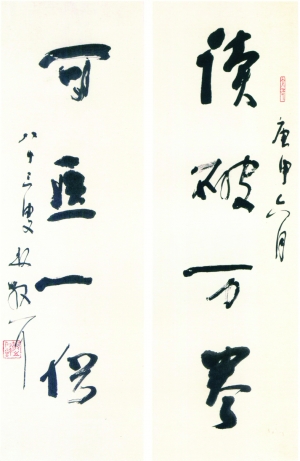 庚申六月
读破万卷
可医一俗
八十三叟林散耳